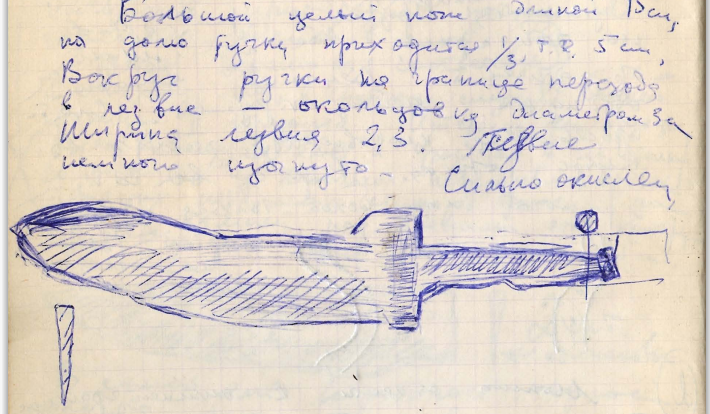 Большой целый нож длиной 15см,
на долю ручки приходится 1/3, т.е. 5 см,
Вокруг ручки на границе перехода
в лезвие — окольцовка диаметром 3а
Ширина лезвия 2,3. Лезвие
немного изогнуто.
Сильно окислен,